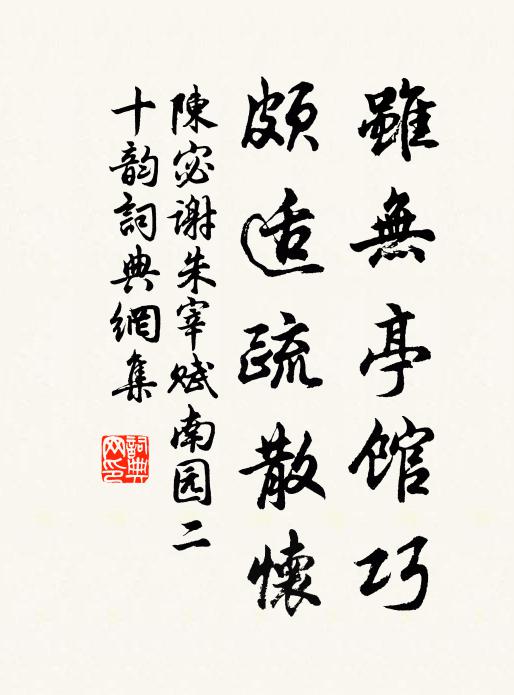 雖無亭館巧
頗适疏散懷
陳宓謝朱宰賦南园二
十韵詞典網集
詞典网印